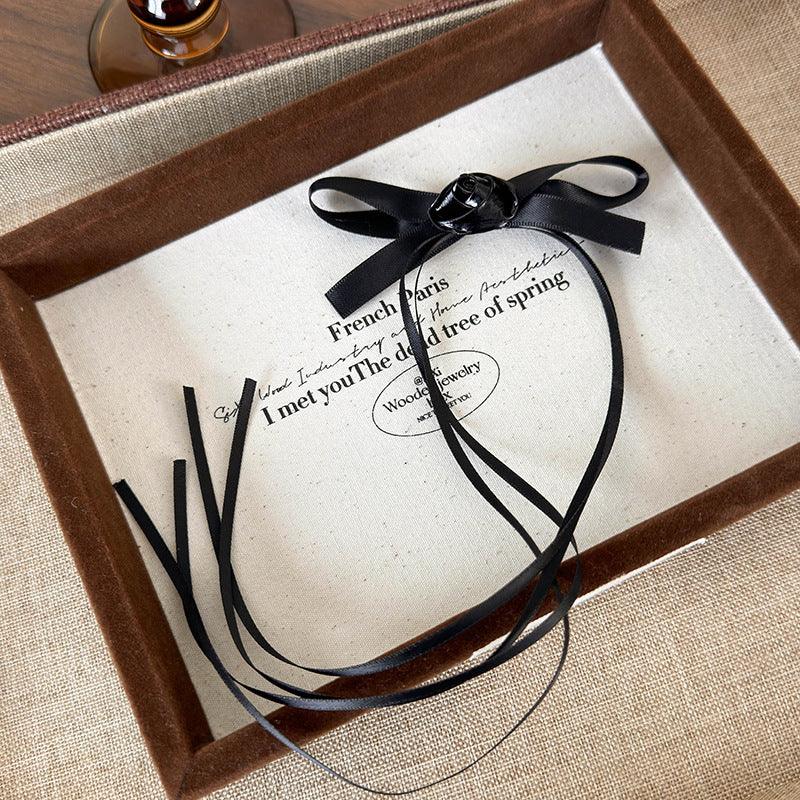 French Paris
Wood Industry and Home Aesthetics
I met youThe dead tree of spring
Wooden jewelry
NICE MEET YOU